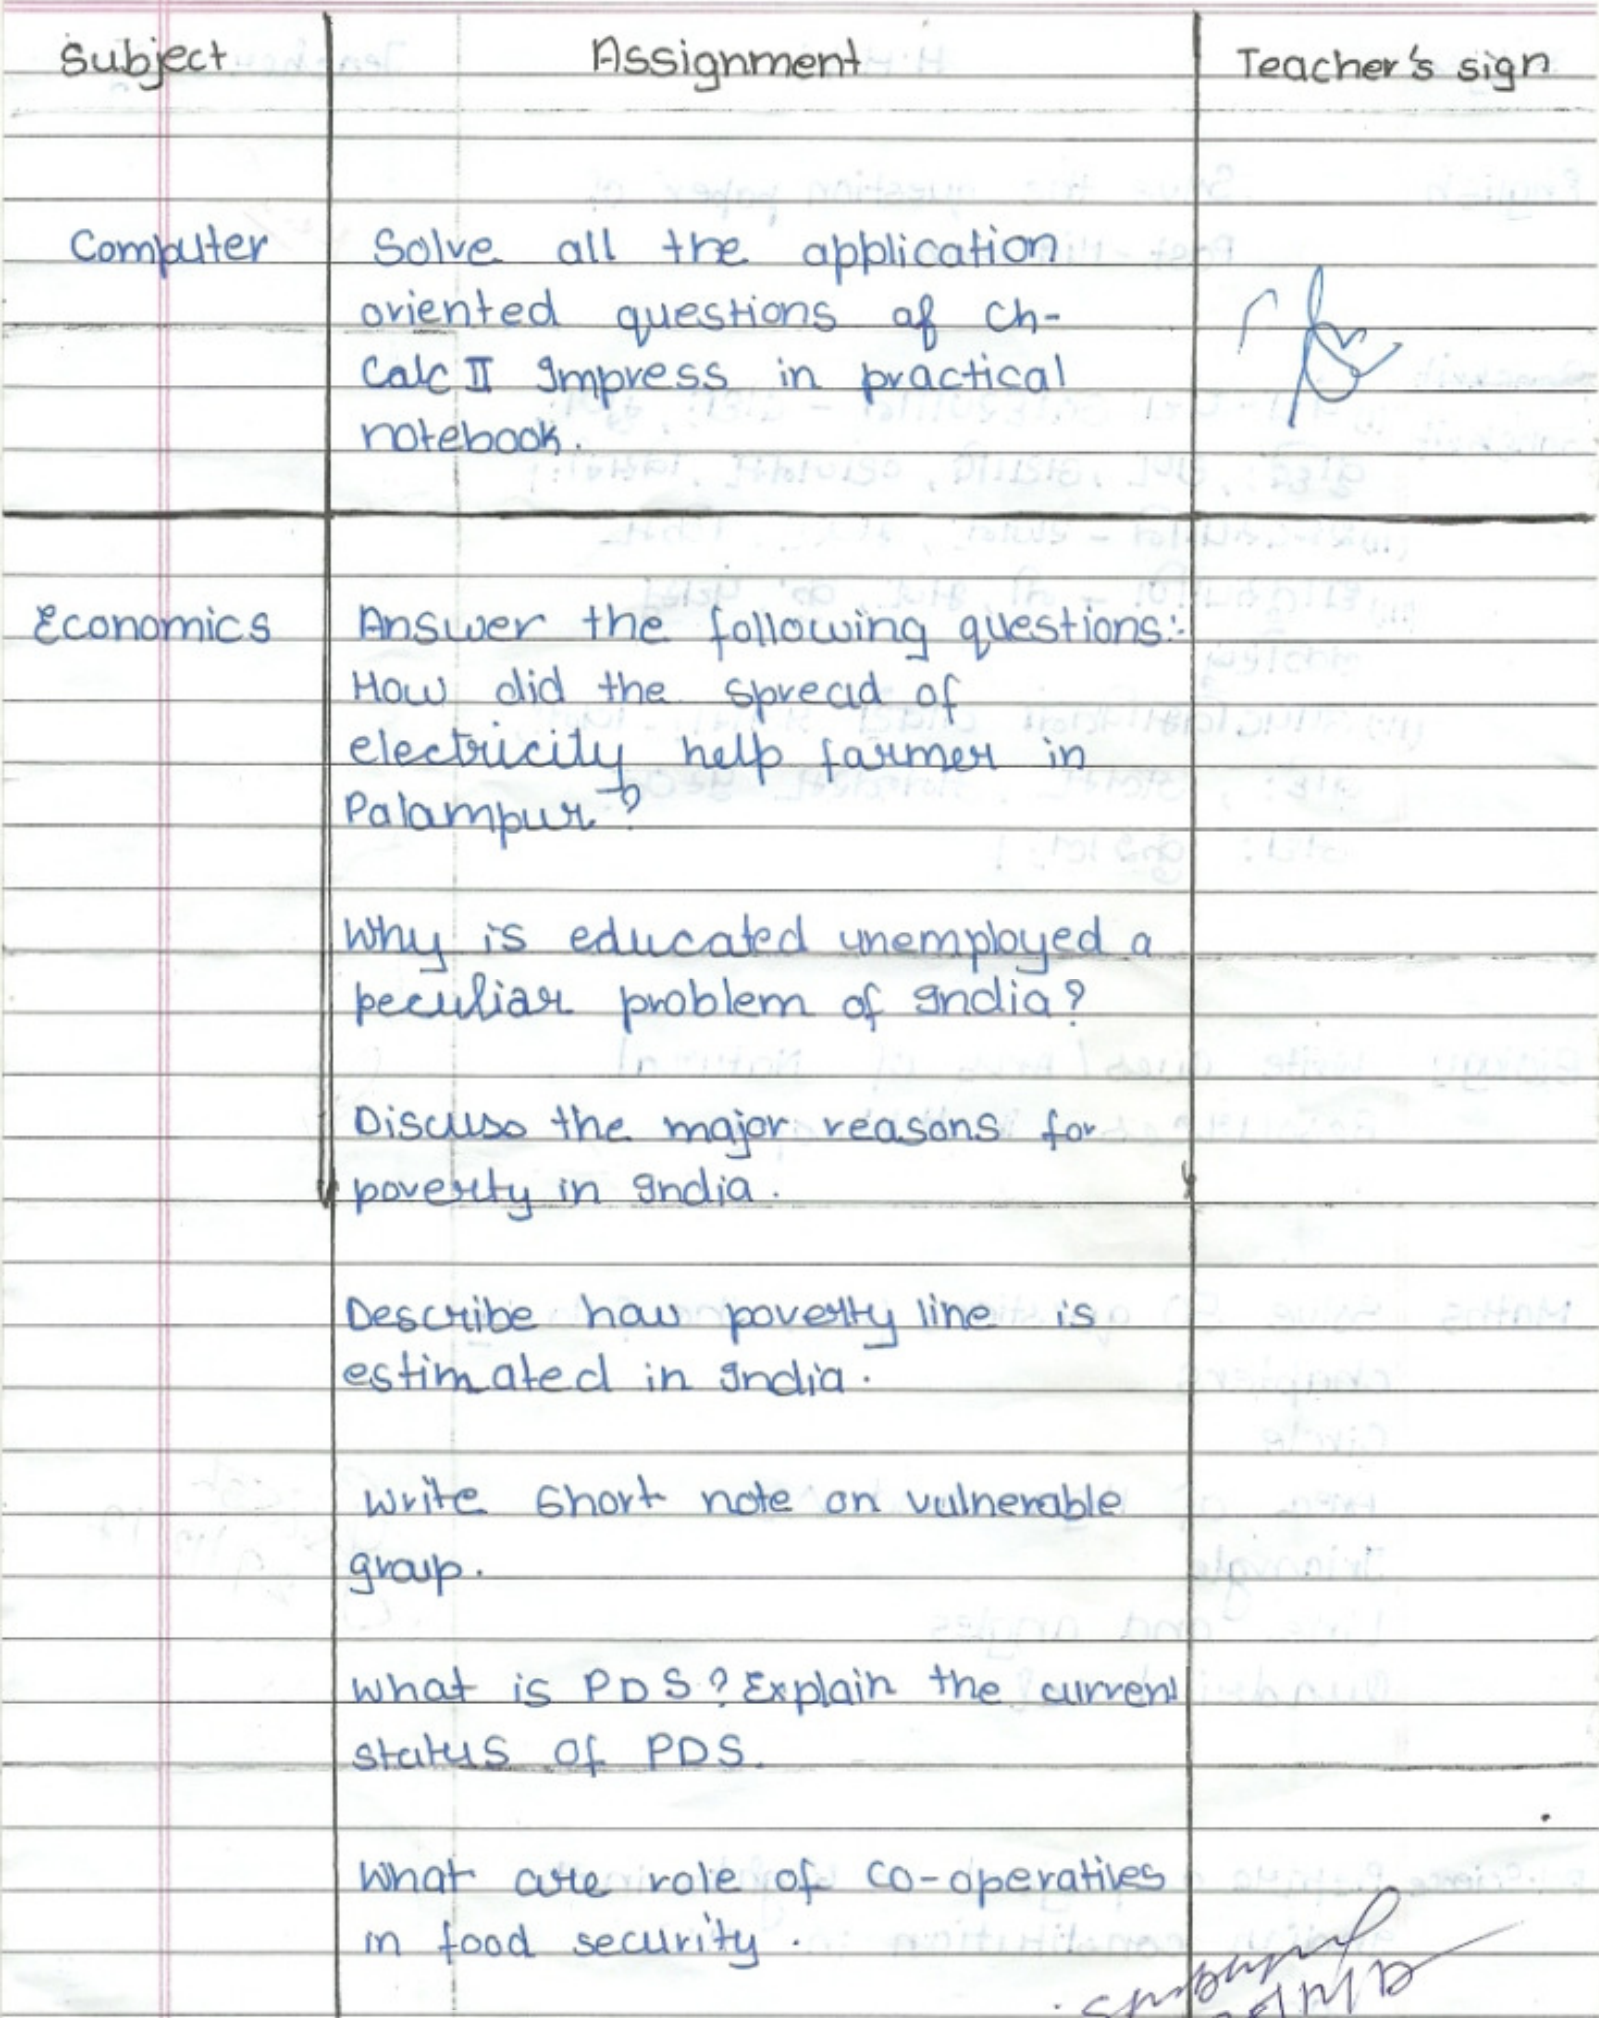 Subject Assignment Teacher's sign
Computer Solve all the application
oriented questions of Ch-
Calc II Impress in practical
notebook.
Economics Answer the following questions:-
How did the spread of
electricity help farmer in
Palampur?
Why is educated unemployed a
peculiar problem of India?
Discuss the major reasons for
poverty in India.
Describe how poverty line is
estimated in India.
Write short note on vulnerable
group.
What is PDS? Explain the current
status of PDS.
What are role of co-operatives
in food security.